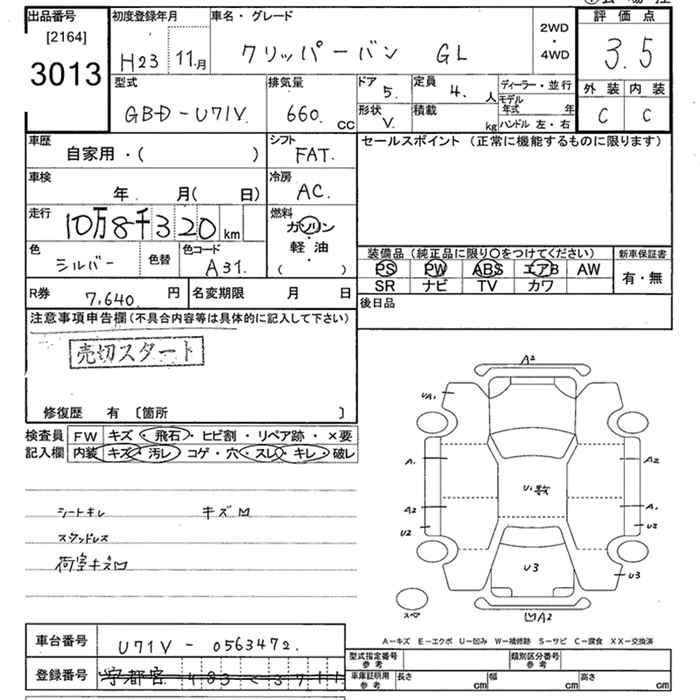 出品番号 初度登録年月 車名・グレード 評価点
[2164]
3013 H23 11月 クリッパーバン GL 2WD・4WD 3.5
型式 排気量 ドア 定員 ディーラー・並行 外装 内装
GBD-U71V 660 CC 5. 4.人 モデル年式 年 C C
形状 積載
V. kg ハンドル 左・右
車歴 シフト セールスポイント (正常に機能するものに限ります)
自家用・( ) FAT.
車検 冷房
年 月( 日) AC.
走行 燃料
10万8千320km ガソリン
・
軽油
( )
色 色替 色コード
シルバー A31.
装備品 (純正品に限り〇をつけてください) 新車保証書
PS PW ABS エアB AW 有・無
SR ナビ TV カワ
R券 7,640. 円 名変期限 月 日
後日品
注意事項申告欄(不具合内容等は具体的に記入して下さい)
売切スタート
修復歴 有 〔箇所 〕
検査員 FW キズ・飛石・ヒビ割・リペア跡・×要
記入欄 内装 キズ・汚レ・コゲ・穴・スレ・キレ・破レ
シートキレ キズ凹
スタッドレス
荷室キズ凹
A2
UA1
A1 A2
U1数
A2 A1
U2 U2
U3 U3
スペア 凹A2
A-キズ E-エクボ U-凹み W-補修跡 S-サビ C-腐食 XX-交換済
車台番号 U71V - 0563472.
型式指定番号 参考 類別区分番号 参考
登録番号 宇都宮
車庫証明用 参考 長さ cm 幅 cm 高さ cm